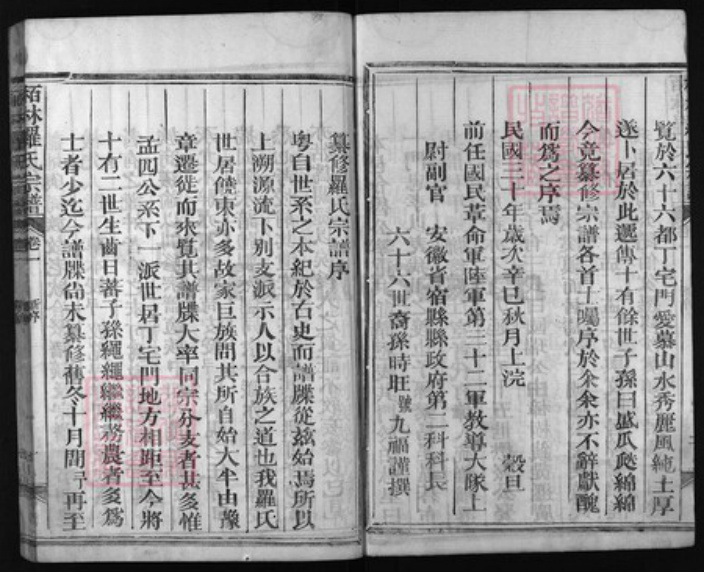 覽於六十六都丁宅門愛慕山水秀麗風純土厚
遂卜居於此遞傳十有餘世子孫曰盛瓜瓞綿綿
今竟纂修宗譜各首士囑序於余余亦不辭獻醜
而爲之序焉
民國三十年歲次辛巳秋月上浣 穀旦
前任國民革命軍陸軍第三十二軍教導大隊上
尉副官 安徽省宿縣縣政府第二科科長
六十六世裔孫時旺號九福謹撰
纂修羅氏宗譜序
粵自世系之本紀於右史而譜牒從茲始焉所以
上溯源流下別支派示人以合族之道也我羅氏
世居饒東亦多故家巨族問其所自始大半由豫
章遷徙而來覽其譜牒大率同宗分支者甚多惟
孟四公系下一派世居丁宅門地方相距至今將
十有二世生齒日蕃子孫繩繩繼繼務農者多爲
士者少迄今譜牒尚未纂修舊冬十月間 再至
栢林羅氏宗譜
卷一